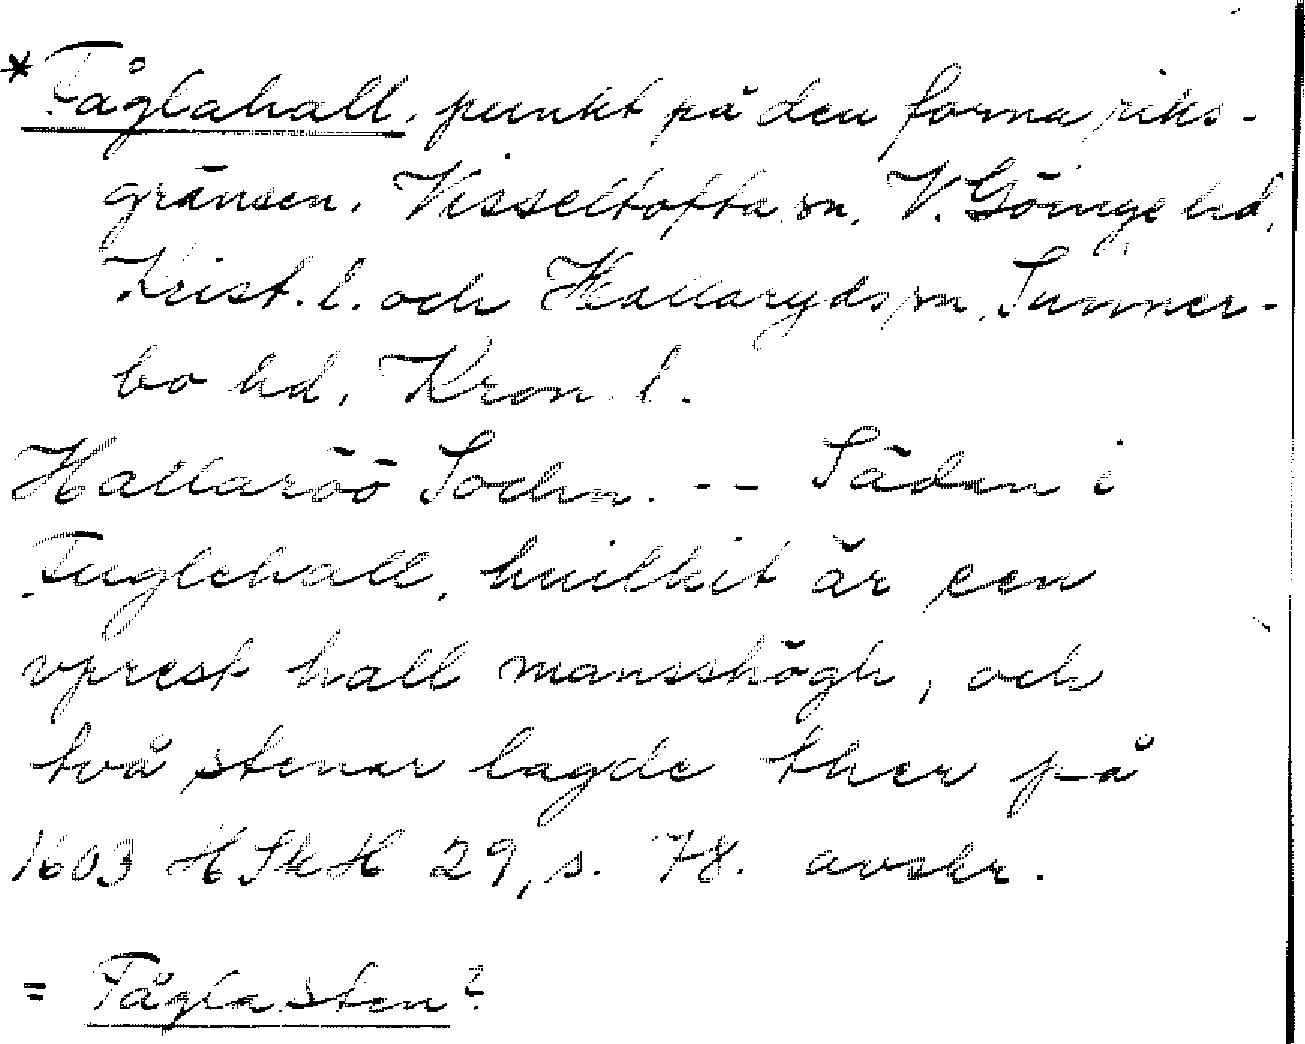 *Fåglahall, punkt på den forna riks-
gränsen. Visseltofta sn, V. Göinge hd,
Krist. l. och Hallaryds sn, Sunner-
bo hd, Kron. l.
Hallaröö Sochn. -- Säden i
Fuglehall, huilkit är een
vprest hall mansshögh, och
två stenar lagde ther på
1603 HSkH 29, s. 78. avskr.
= Fåglasten?